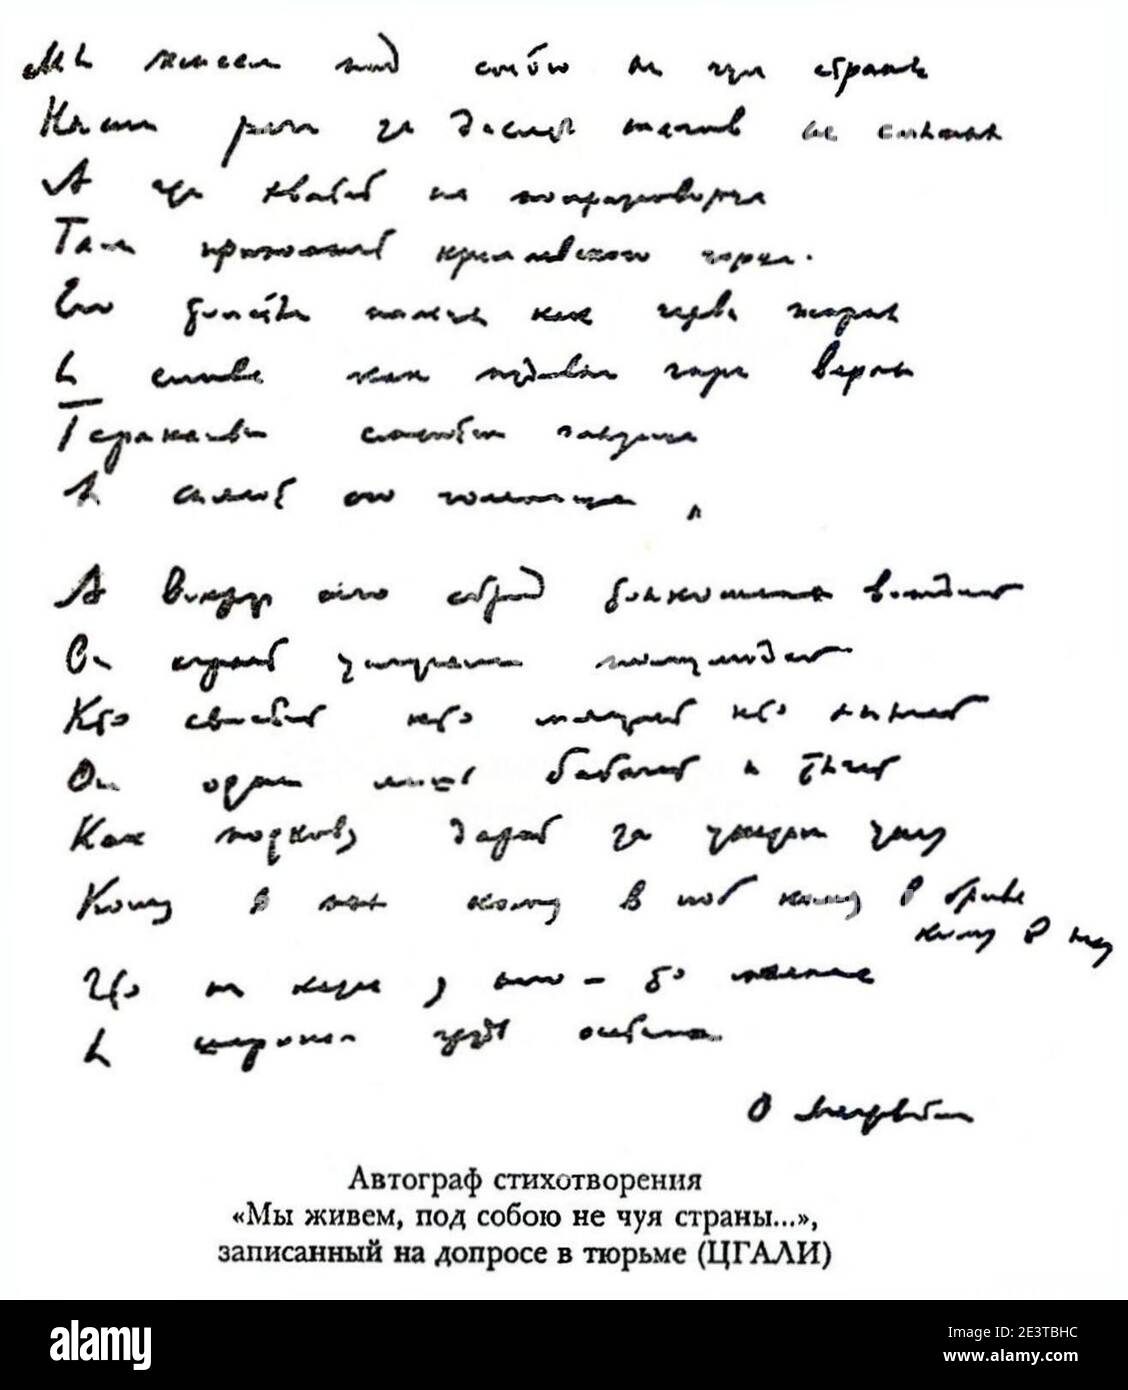 Мы живем под собою не чуя страны
Наши речи за десять шагов не слышны
А где хватит на полразговорца
Там припомнят кремлевского горца.
Его толстые пальцы как черви жирны
И слова как пудовые гири верны
Тараканьи смеются глазища
И сияют его голенища
А вокруг его сброд тонкошеих вождей
Он играет услугами полулюдей
Кто свистит кто мяучит кто хнычет
Он один лишь бабачит и тычет
Как подкову дарит за указом указ
Кому в пах кому в лоб кому в бровь
кому в глаз
Что ни казнь у него – то малина
И широкая грудь осетина
О Мандельштам
Автограф стихотворения
«Мы живем, под собою не чуя страны...»,
записанный на допросе в тюрьме (ЦГАЛИ)
alamy
Image ID: 2E3TBHC
www.alamy.com